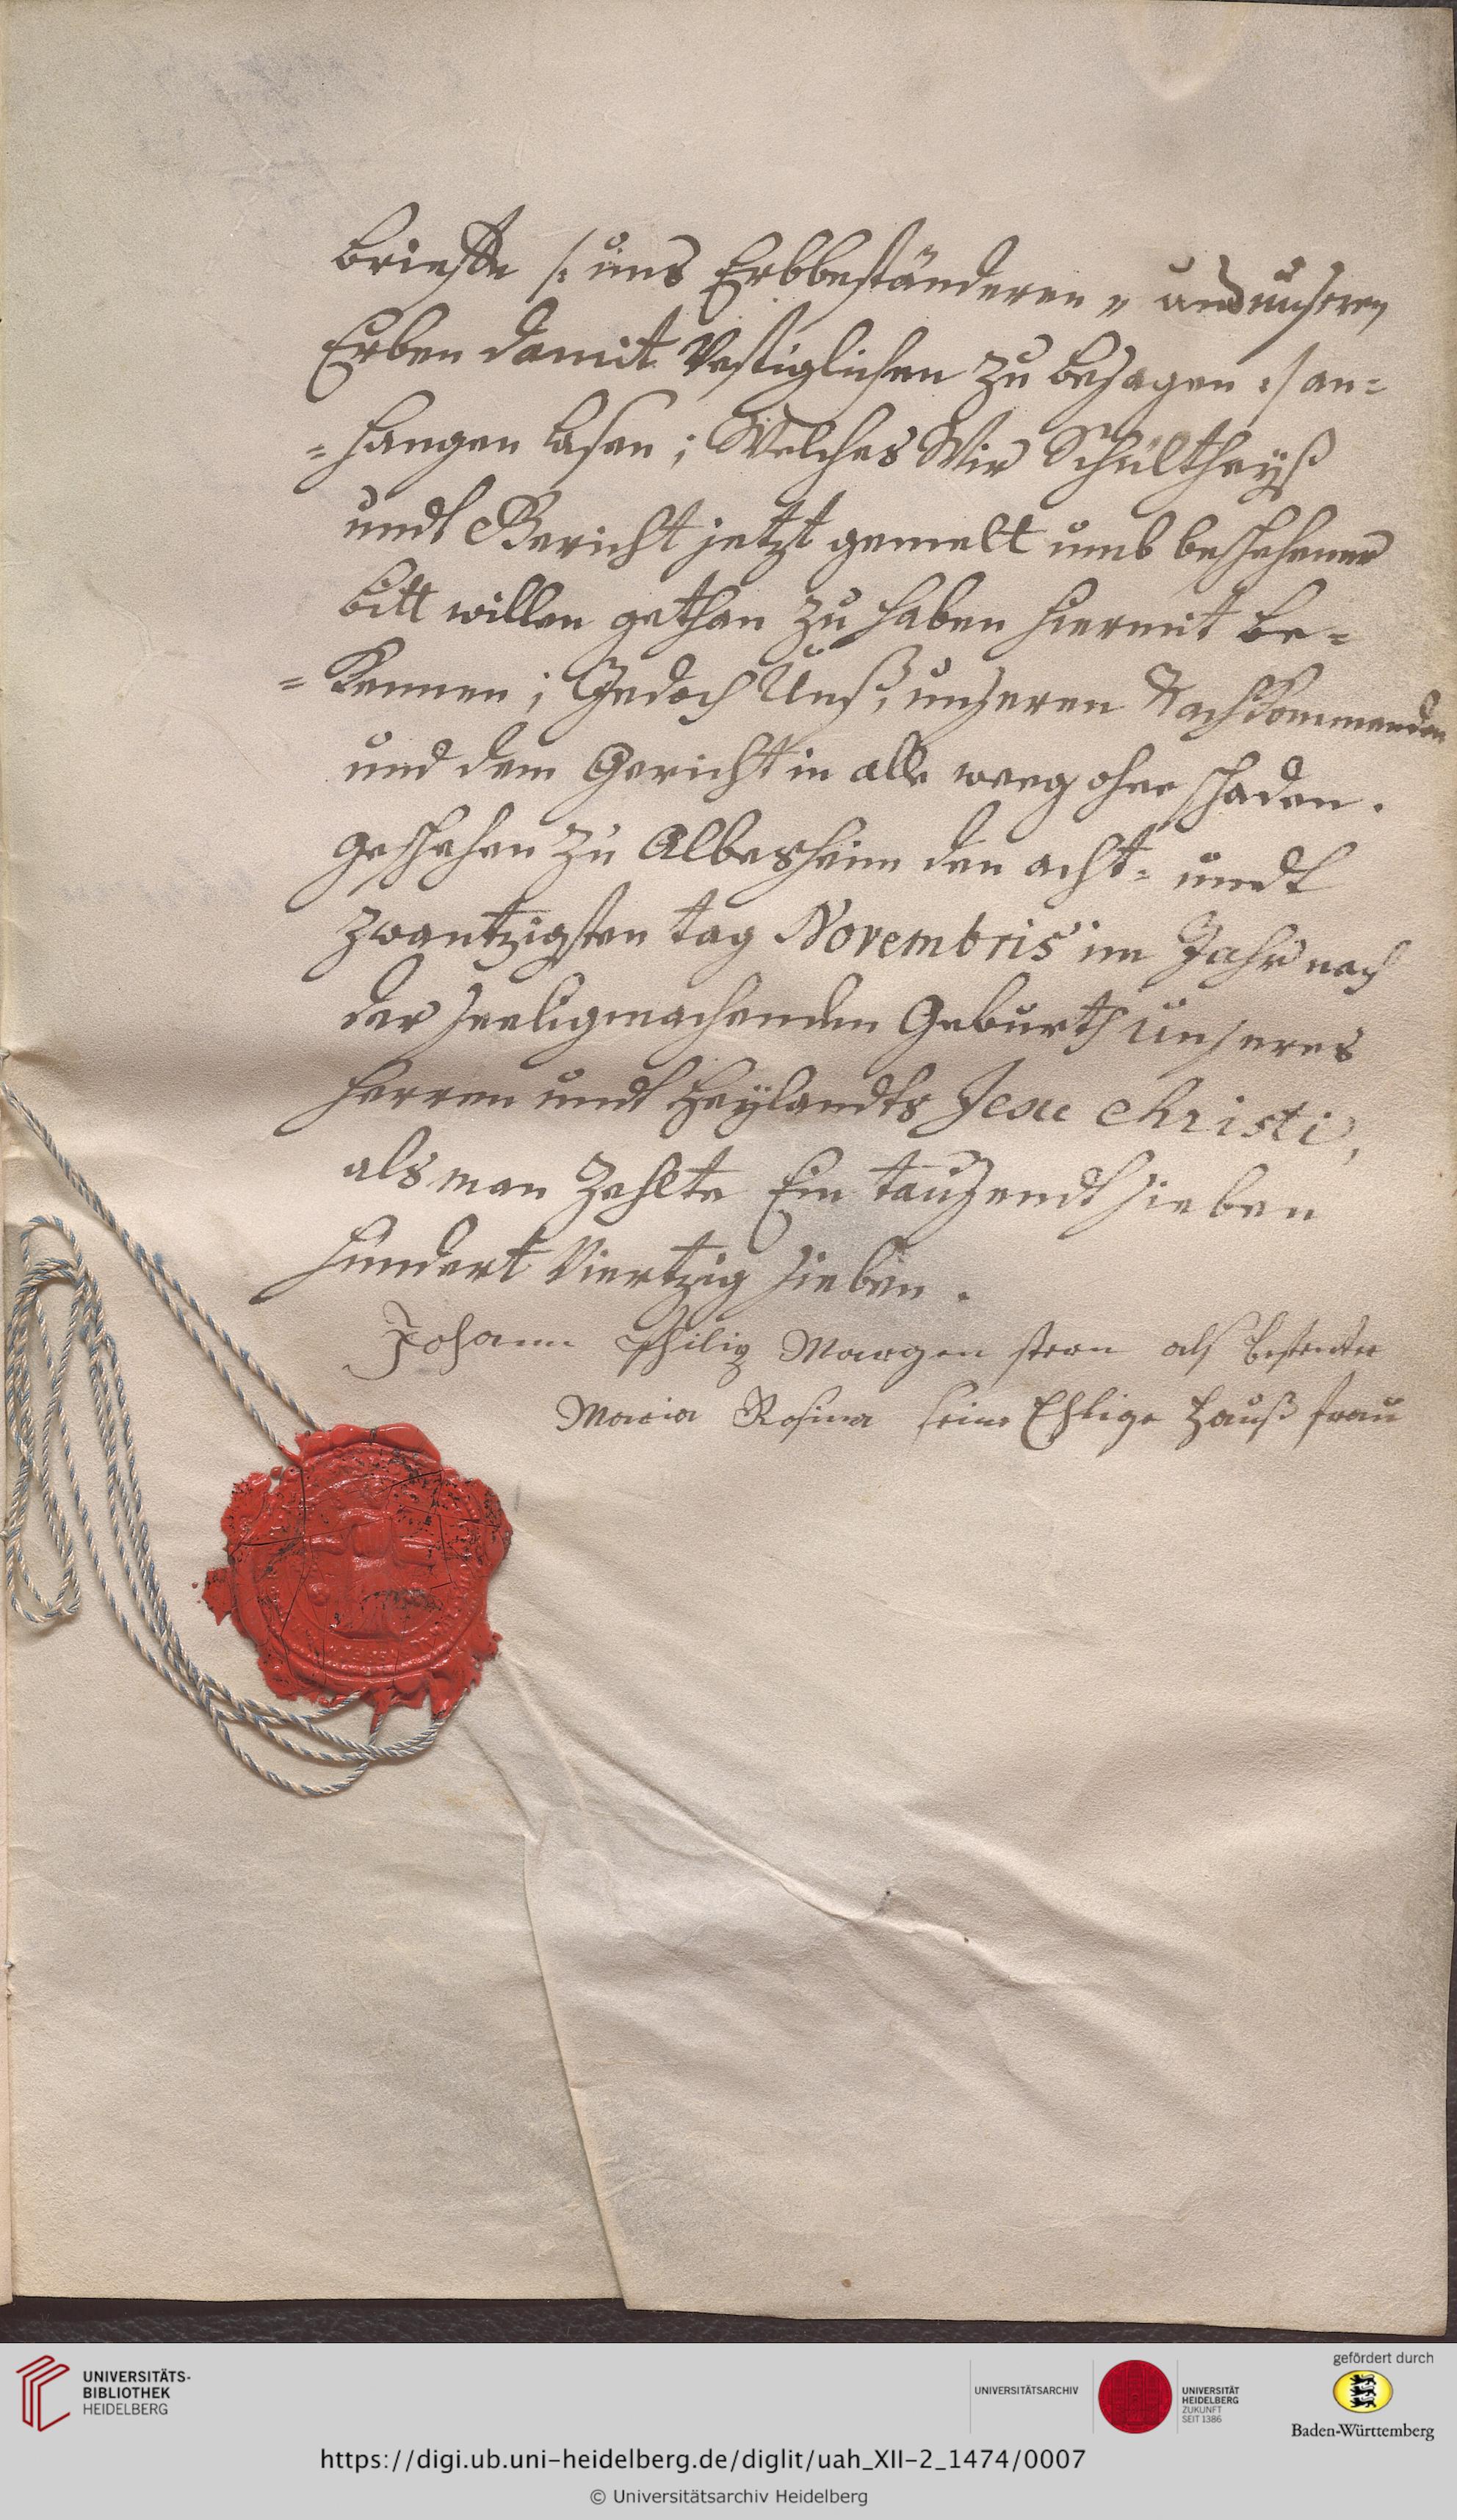 brieffe /: uns Erbbeständeren " und unseren
Erben damit Vestiglichen zu besagen :/ an=
=hangen lasen; Welches Wir Schultheyß
undt Gericht jetzt gemelt umb beschehener
bitt willen gethan zu haben hiermit be=
=kennen; Jedoch Unß, unseren Nachkommenden
und dem Gericht in alle weeg ohne schaden.
geschehen zu Albesheim den acht= undt
zwantzigsten tag Novembris im Jahr nach
der seeligmachenden Geburth unseres
Herren undt Heylandts Jesu Christi,
als man Zehlte Ein tausendt sieben
hundert Viertzig sieben.
Johann Philip Morgen stern als bestender
Maria Rosina seine Ehlige Hauß frau
UNIVERSITÄTS-
BIBLIOTHEK
HEIDELBERG
UNIVERSITÄTSARCHIV
UNIVERSITÄT
HEIDELBERG
ZUKUNFT
SEIT 1386
gefördert durch
Baden-Württemberg
https://digi.ub.uni-heidelberg.de/diglit/uah_XII-2_1474/0007
© Universitätsarchiv Heidelberg